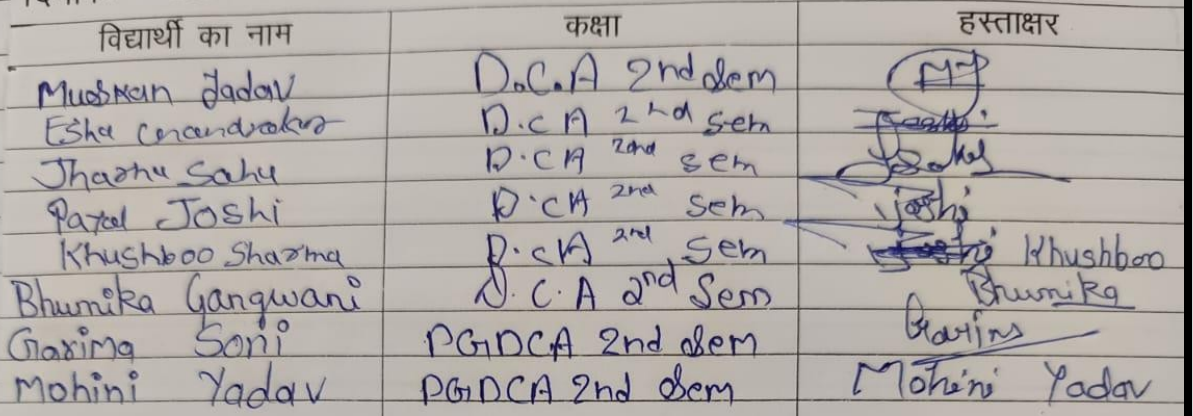 विद्यार्थी का नाम कक्षा हस्ताक्षर
Muskan Yadav D.C.A 2nd Sem MY
Esha Chandraker D.C A 2nd Sem
Jharnu Sahu D.CA 2nd sem JSahu
Payal Joshi D.CA 2nd Sem Joshi
Khushboo Sharma D.CA 2nd Sem Khushboo
Bhumika Gangwani D.C.A 2nd Sem Bhumika
Garima Soni PGDCA 2nd Sem Garima
Mohini Yadav PGDCA 2nd Sem Mohini Yadav